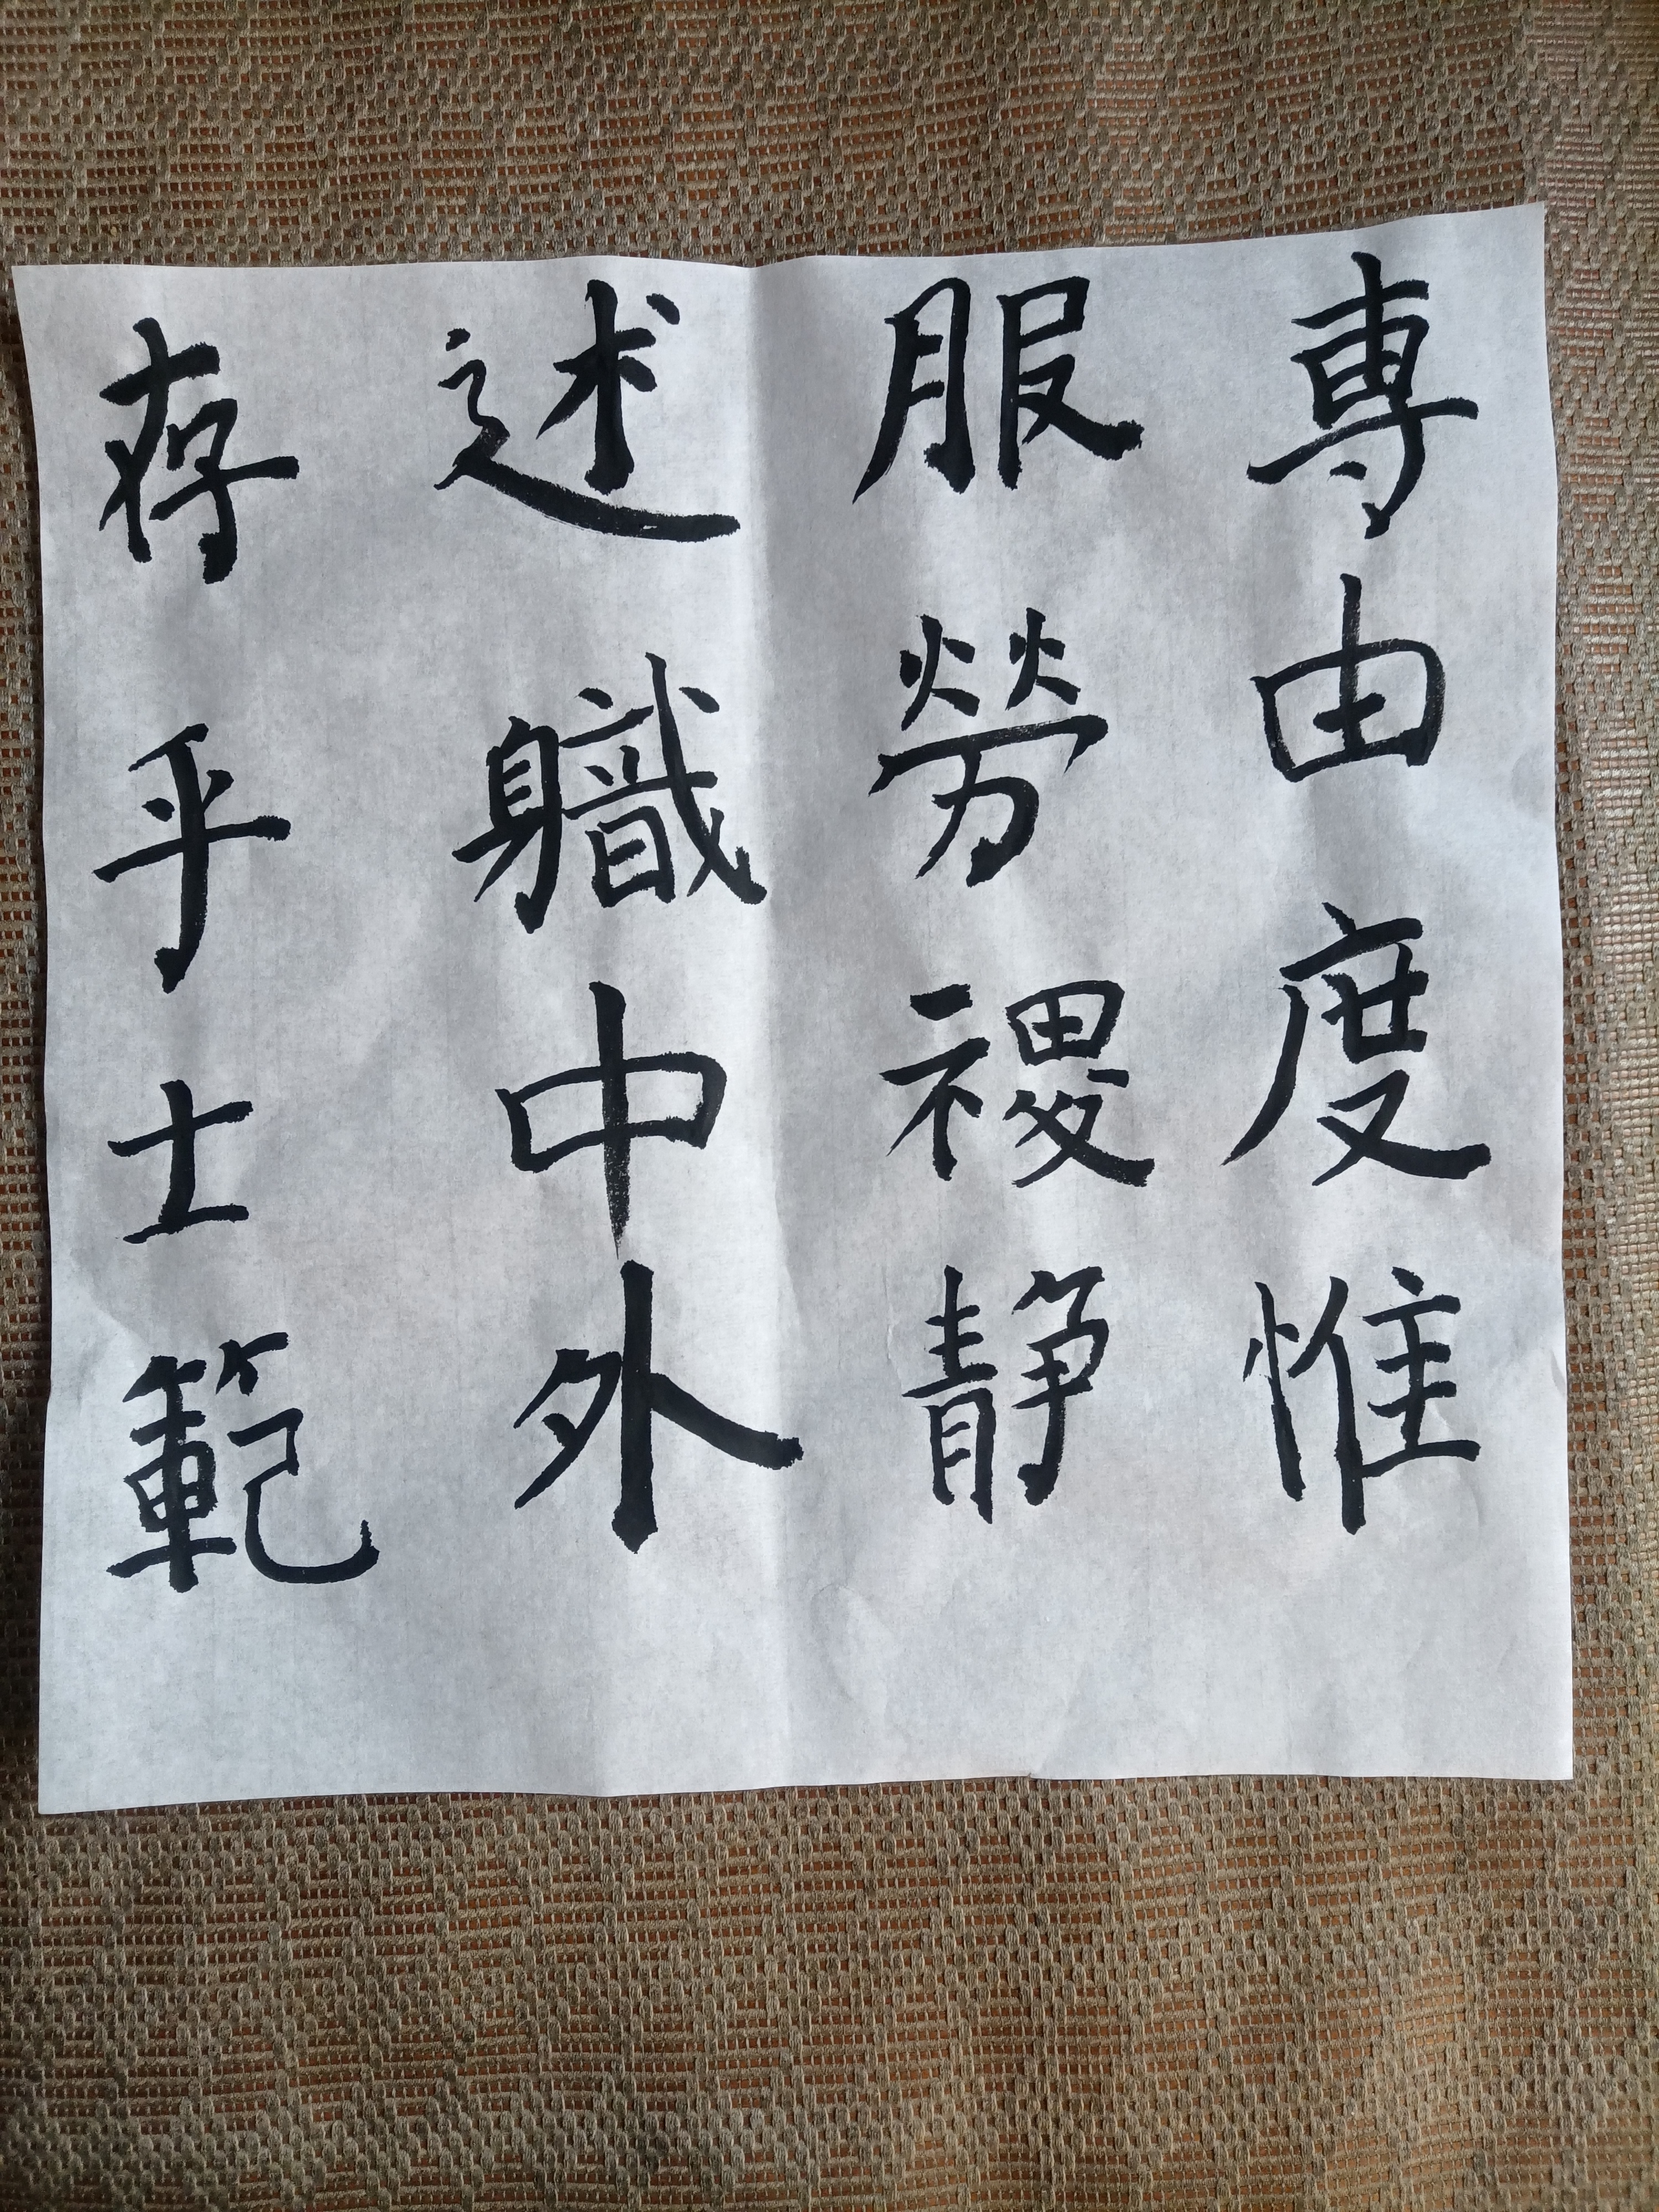 專由度惟
服勞禝静
述軄中外
存乎士範